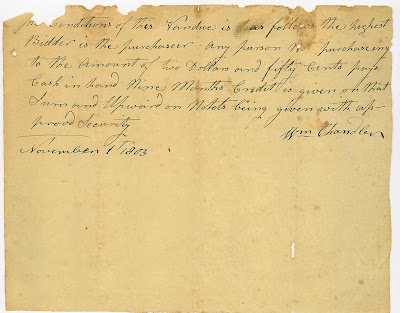 The Conditions of this Vandue is as follows the highest
Bidder is the purchaser - Any person purchaseing
to the Amount of two Dollars and fifty Cents pays
Cash in hand Nine Months Credit is given on that
Sum and Upward on Notets being given with ap-
provd Security
Wm Chandler
November 1st 1803